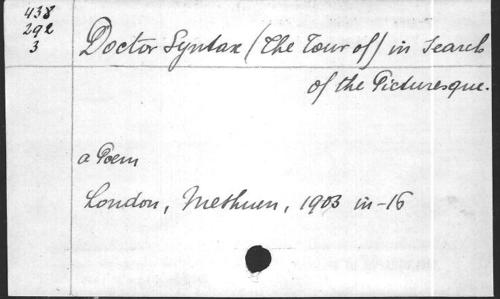 438
292
3
Doctor Syntax (The Tour of) in Search
of the Picturesque.
a Poem
London, Methuen, 1903 in-16